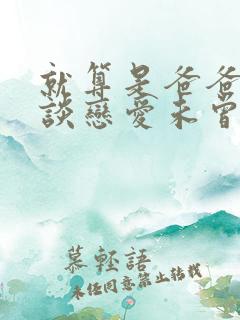 就算是爸爸
談戀愛未曾
慕輕語
未任同意禁止转载